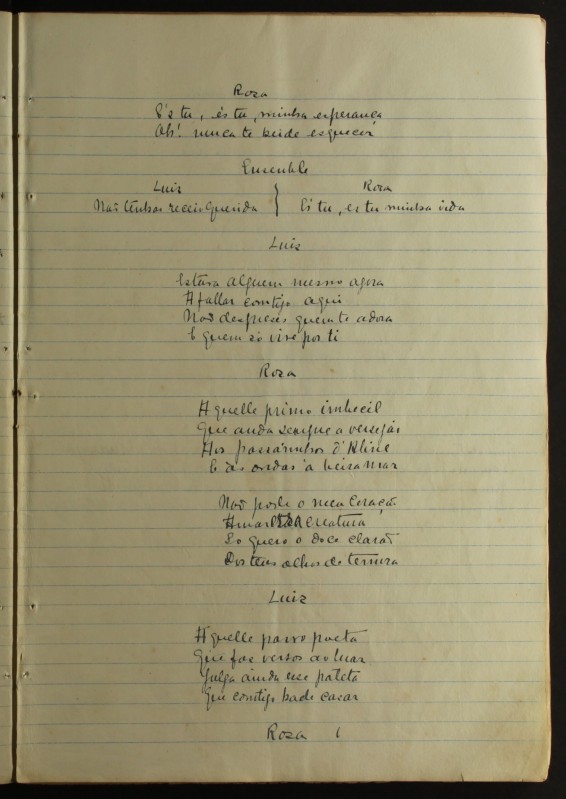 Rosa
És tu, és tu, minha esperança
Oh! nunca te heide esquecer
Ensemble
Luiz
Rosa
Não tenhas receio querida
És tu, es tu minha vida
Luiz
Estava alguem mesmo agora
A fallar comtigo aqui
Não despreses quem te adora
E quem só vive por ti
Rosa
Aquelle primo imbecil
Que anda sempre a versejar
Aos passarinhos
E ás ondas á beira mar
Não pode o meu coração
Amar creatura
Só quero o doce clarão
Dos teus olhos de ternura
Luiz
Aquelle parvo poeta
Que faz versos ao luar
Julga ainda esse pateta
Que comtigo hade casar
Rosa